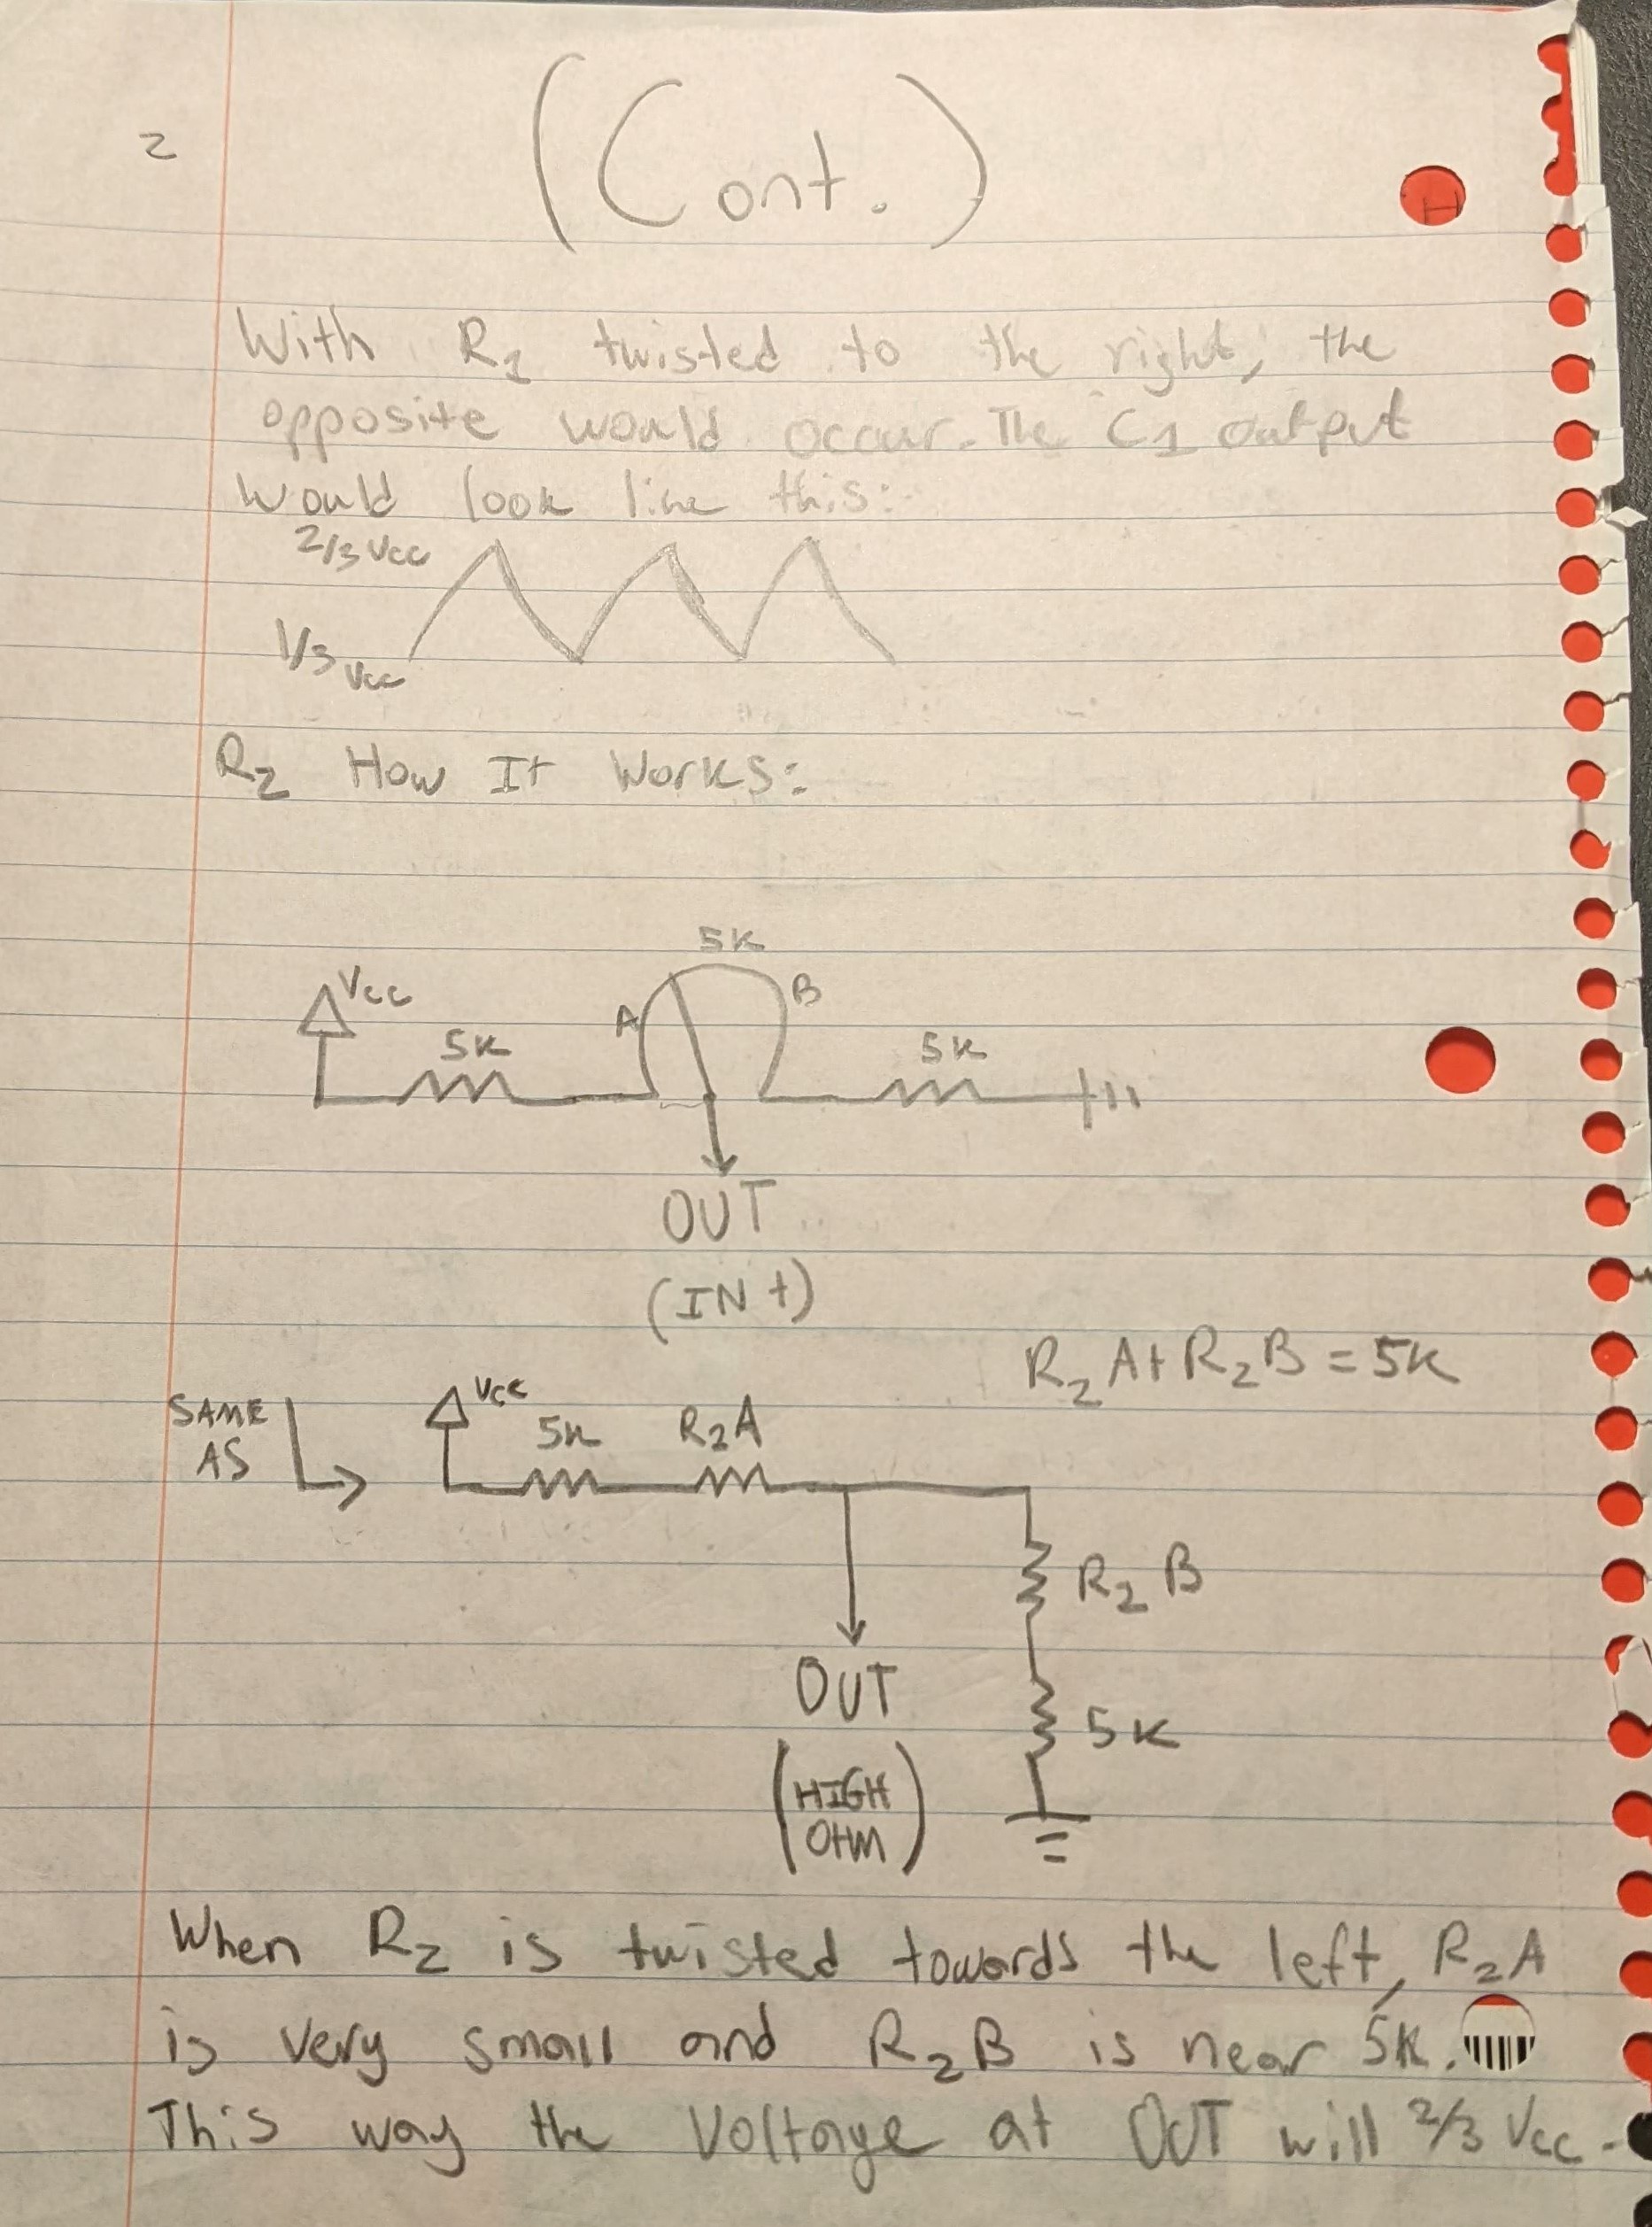 2
(Cont.)
With R1 twisted to the right, the
opposite would occur. The C1 output
would look like this:
2/3 Vcc
1/3 Vcc
R2 How It Works:
5K
Vcc
A
B
5K
5K
OUT
(IN +)
R2A + R2B = 5K
SAME
AS
Vcc
5K
R2A
R2B
OUT
5K
(HIGH
OHM)
When R2 is twisted towards the left, R2A
is very small and R2B is near 5K.
This way the Voltage at OUT will 2/3 Vcc.